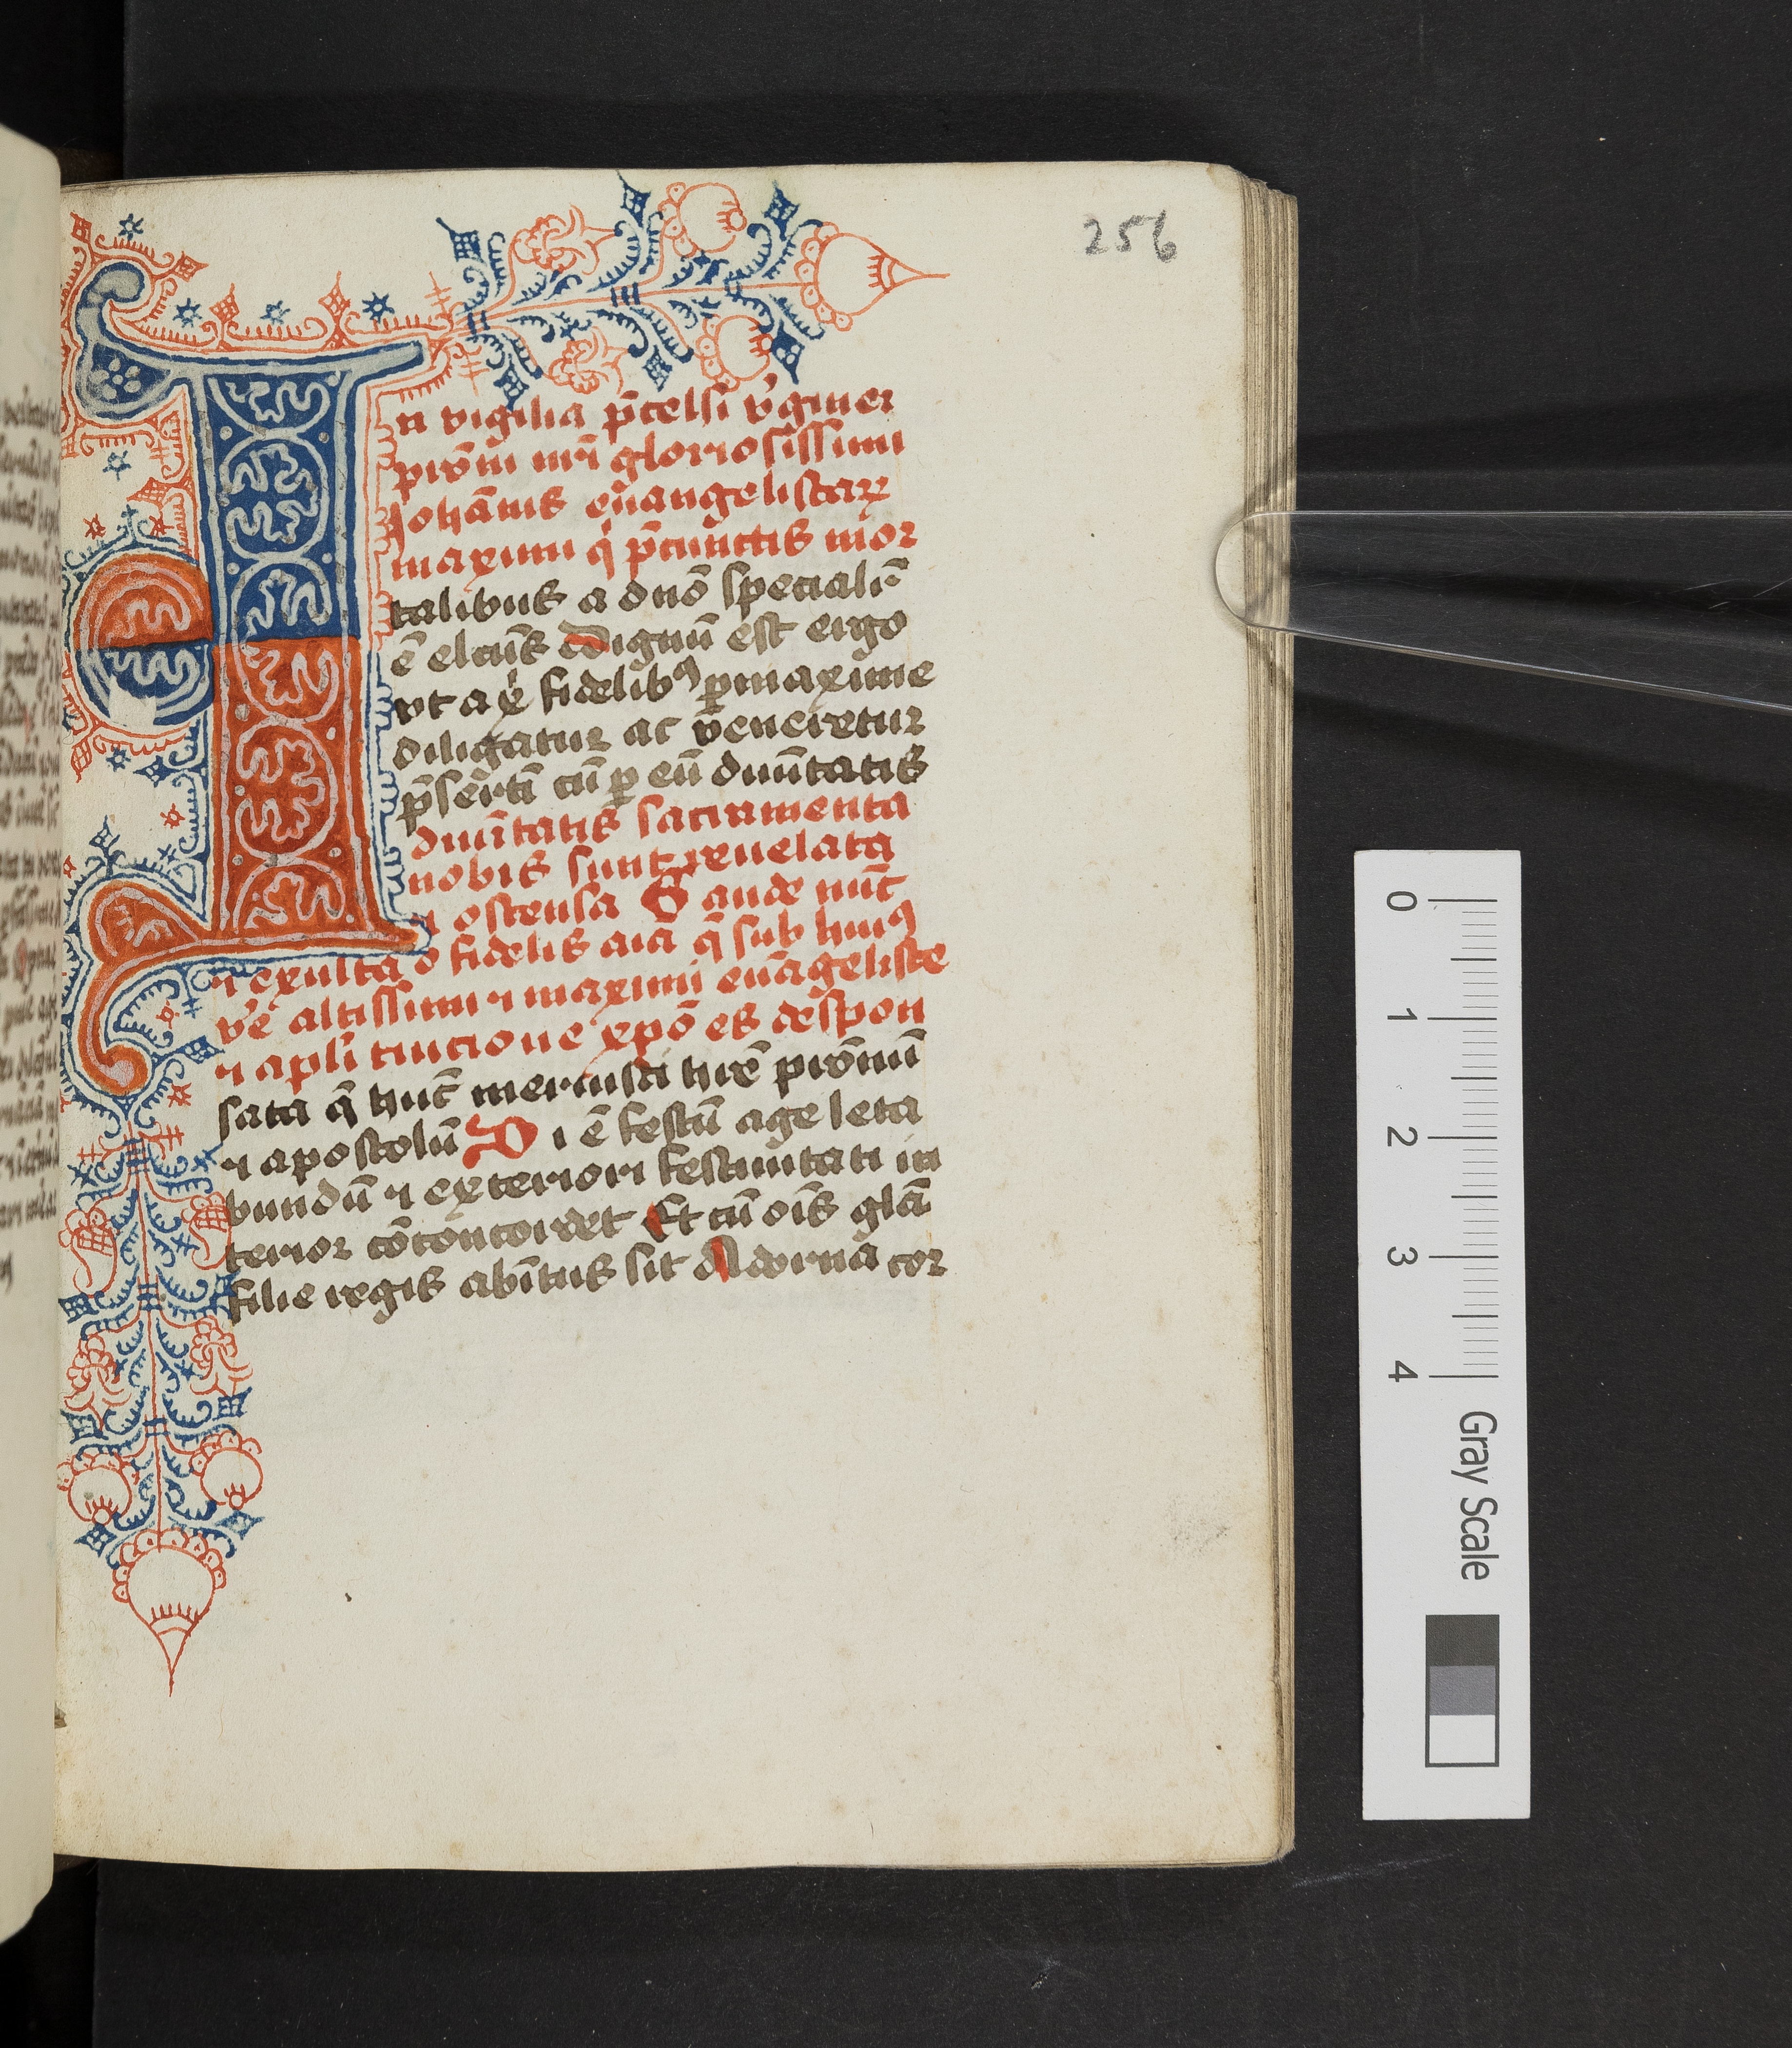 256
In vigilia p̄celsi v̓giner
pr̄oni nr̄i gloriosissimi
Johānis ewangelistaꝝ
maximi q̇ p̄cunctis mor
talibus a dnō specialiͬ
ē elcūs Dignū est ergo
vt a xp̄i fidelibꝰ ꝑmaxime
diligatur ac veneretur
p̄sertī cū ꝑ eū diuītatis
diuītatis sacramenta
nobis sunt reuelata
⁊ ostensa Gaude nūc
⁊ exulta o fidelis aīa q̄ sub huiꝰ
v̓e altissimi ⁊ maximi ewāgeliste
⁊ apl̄i tuicione xp̄o es despon
sata q̄ hūc meruisti hr̄e pr̄onū
⁊ apostolū Diē festū age leta
bundū ⁊ exteriori festiuitati in
terior cōconcordet Et cū oīs gl̄a
filie regis abītus sit Adorna cor
0
1
2
3
4
Gray Scale